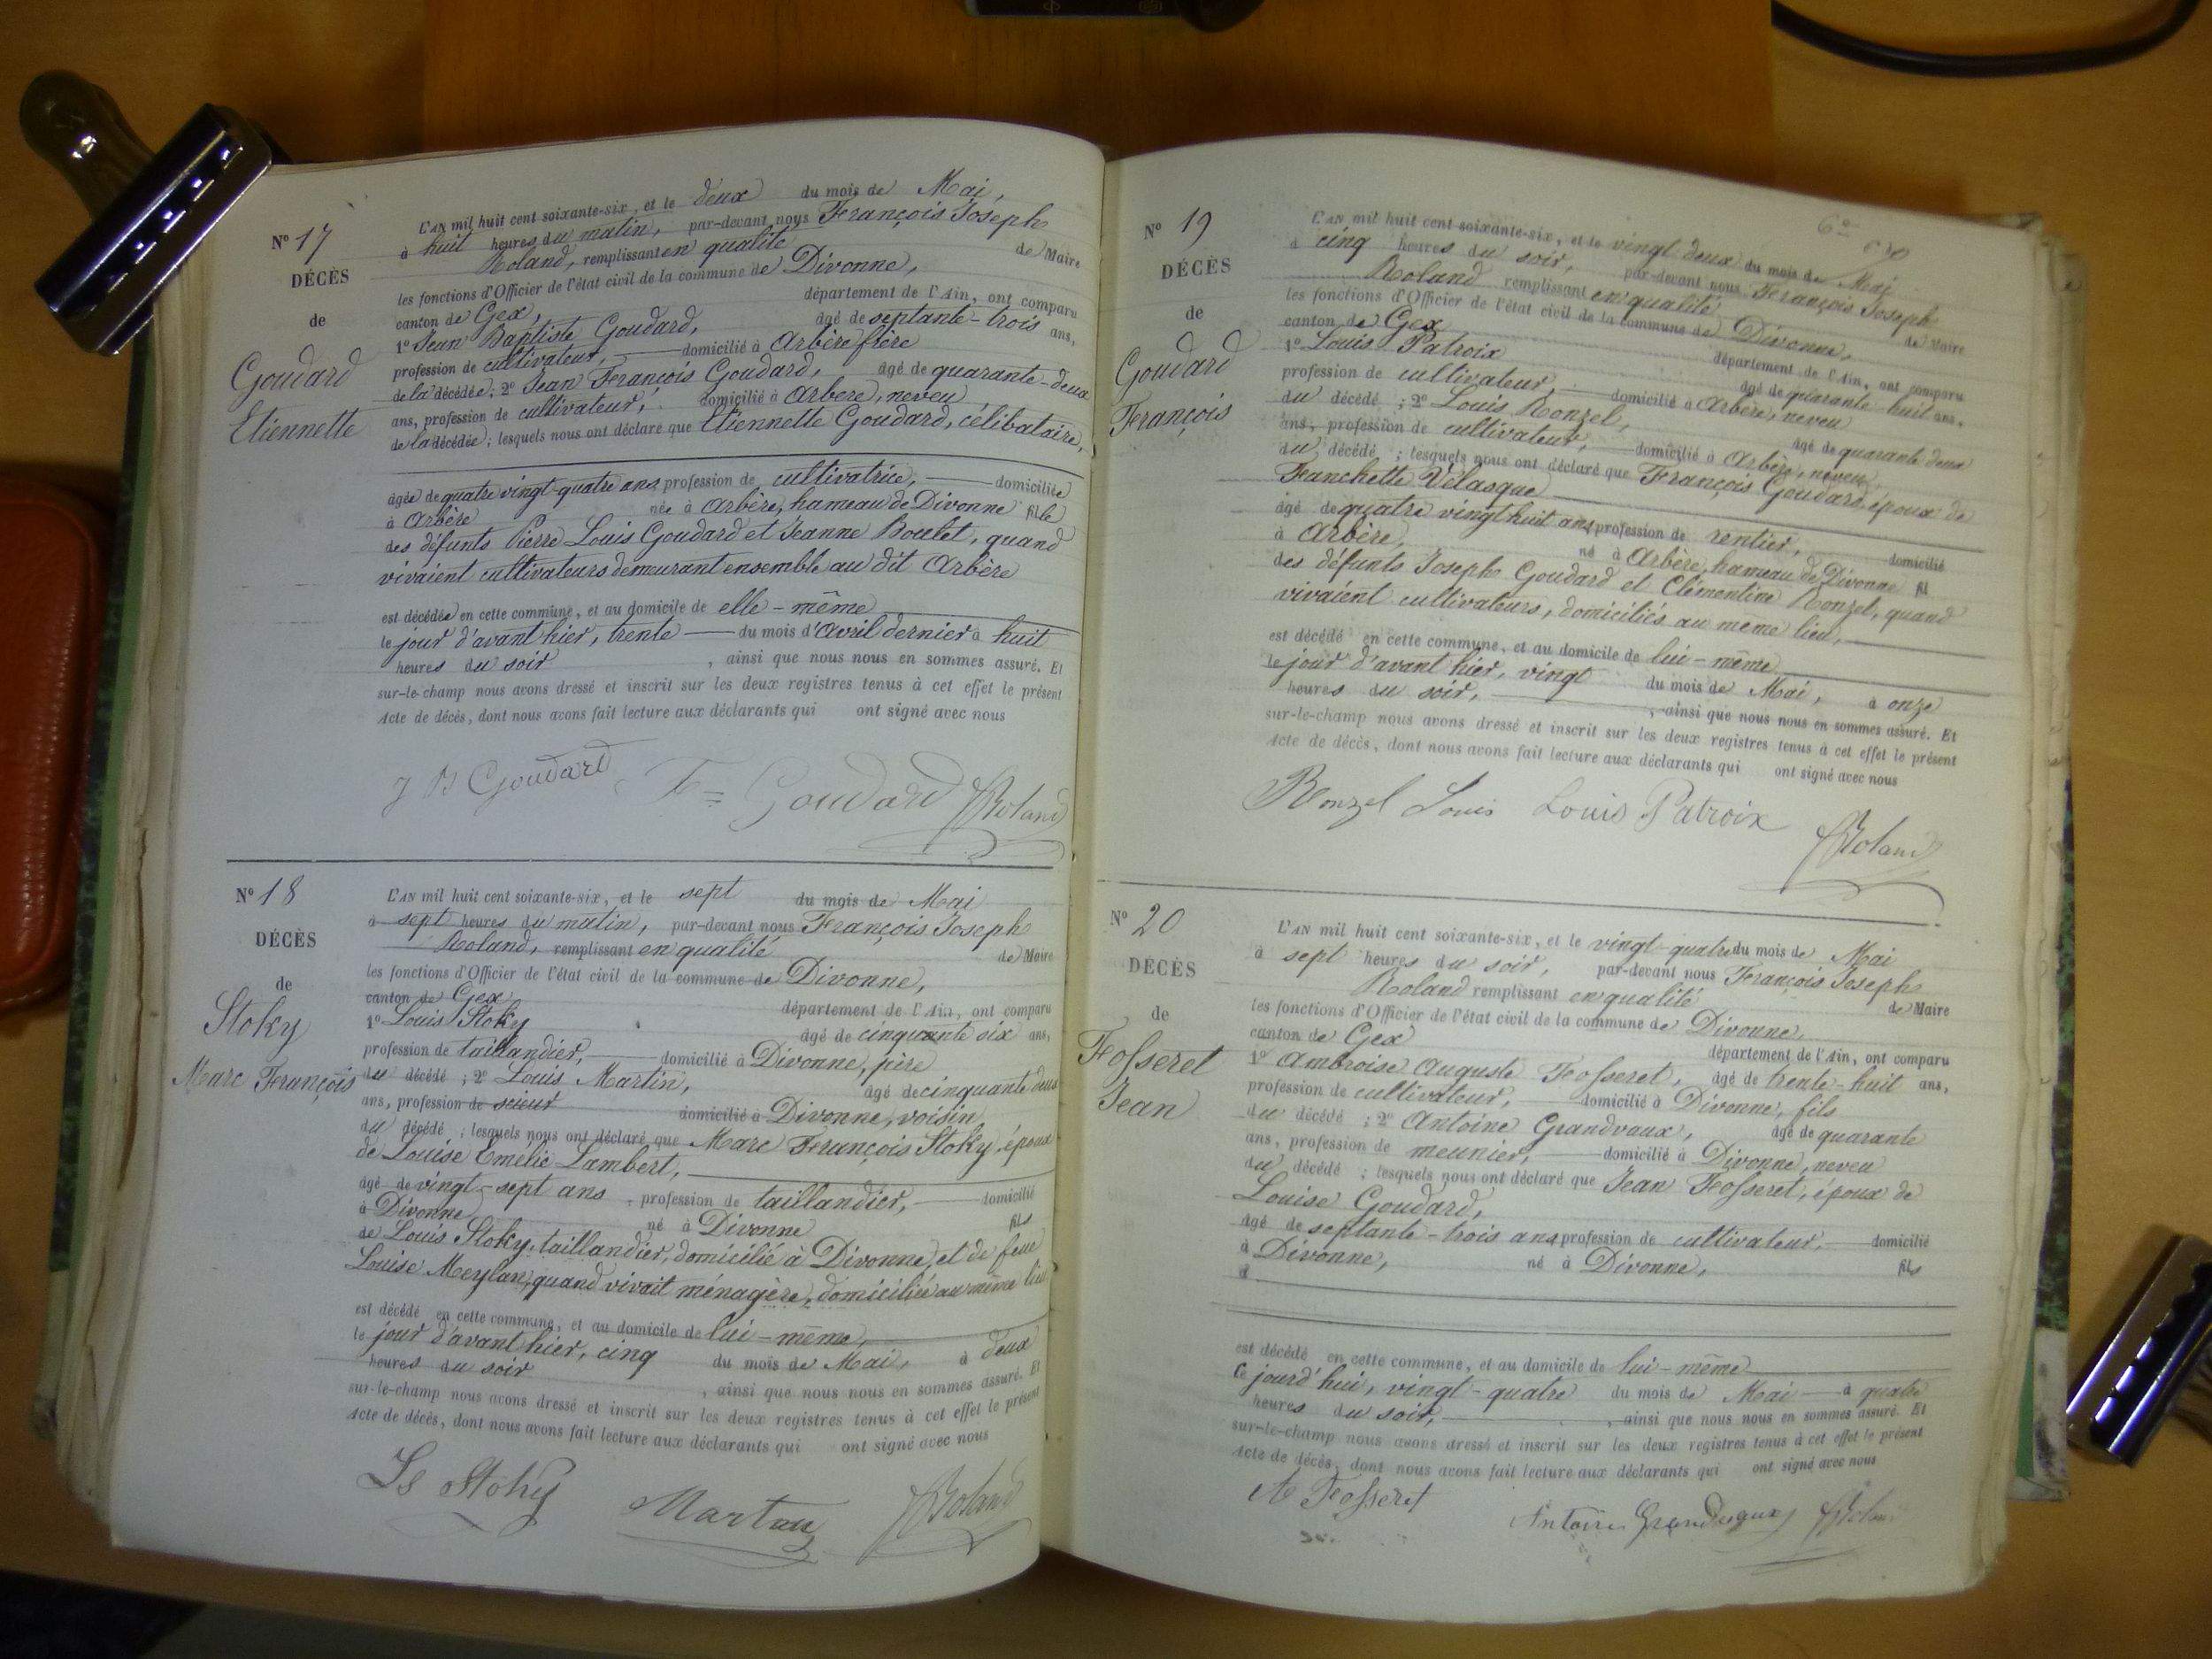 N° 17
DÉCÈS
de
Goudard
Etiennette
L'AN mil huit cent soixante-six, et le deux du mois de Mai,
à huit heures du matin, par-devant nous François Joseph
Roland, remplissant en qualité de Maire
les fonctions d'Officier de l'état civil de la commune de Divonne,
canton de Gex, département de l'Ain, ont comparu
1° Jean Baptiste Goudard, âgé de septante-trois ans,
profession de cultivateur, domicilié à Arbère frère
de la décédée; 2° Jean François Goudard, âgé de quarante-deux
ans, profession de cultivateur, domicilié à Arbère, neveu
de la décédée; lesquels nous ont déclaré que Etiennette Goudard, célibataire,
âgée de quatre vingt-quatre ans, profession de cultivatrice, domiciliée
à Arbère née à Arbère, hameau de Divonne fille
des défunts Pierre Louis Goudard et Jeanne Boulet, quand
vivaient cultivateurs demeurant ensemble au dit Arbère
est décédée en cette commune, et au domicile de elle-même
le jour d'avant hier, trente du mois d'avril dernier à huit
heures du soir, ainsi que nous nous en sommes assuré. Et
sur-le-champ nous avons dressé et inscrit sur les deux registres tenus à cet effet le présent
Acte de décès, dont nous avons fait lecture aux déclarants qui ont signé avec nous
J B Goudard Fs Goudard Roland
N° 18
DÉCÈS
de
Stoky
Marc François
L'AN mil huit cent soixante-six, et le sept du mois de Mai
à sept heures du matin, par-devant nous François Joseph
Roland, remplissant en qualité de Maire
les fonctions d'Officier de l'état civil de la commune de Divonne,
canton de Gex département de l'Ain, ont comparu
1° Louis Stoky âgé de cinquante six ans,
profession de taillandier, domicilié à Divonne, père
du décédé; 2° Louis Martin, âgé de cinquante deux
ans, profession de scieur domicilié à Divonne, voisin
du décédé; lesquels nous ont déclaré que Marc François Stoky, époux
de Louise Emélie Lambert,
âgé de vingt-sept ans, profession de taillandier, domicilié
à Divonne né à Divonne fils
de Louis Stoky, taillandier, domicilié à Divonne, et de feue
Louise Meylan, quand vivait ménagère, domiciliée au même lieu
est décédé en cette commune, et au domicile de lui-même,
le jour d'avant hier, cinq du mois de Mai, à deux
heures du soir, ainsi que nous nous en sommes assuré. Et
sur-le-champ nous avons dressé et inscrit sur les deux registres tenus à cet effet le présent
Acte de décès, dont nous avons fait lecture aux déclarants qui ont signé avec nous
Ls Stoky Martin Roland
N° 19
DÉCÈS
de
Goudard
François
L'AN mil huit cent soixante-six, et le vingt deux du mois de Mai
à cinq heures du soir, par-devant nous François Joseph
Roland remplissant en qualité de Maire
les fonctions d'Officier de l'état civil de la commune de Divonne,
canton de Gex département de l'Ain, ont comparu
1° Louis Patroix âgé de quarante-huit ans,
profession de cultivateur, domicilié à Arbère, neveu
du décédé; 2° Louis Ronzel, âgé de quarante deux
ans, profession de cultivateur, domicilié à Arbère, neveu
du décédé; lesquels nous ont déclaré que François Goudard, époux de
Fanchette Velasque
âgé de quatre vingt huit ans, profession de rentier, domicilié
à Arbère, né à Arbère, hameau de Divonne fil
des défunts Joseph Goudard et Clémentine Ronzel, quand
vivaient cultivateurs, domiciliés au même lieu,
est décédé en cette commune, et au domicile de lui-même
le jour d'avant hier, vingt du mois de Mai, à onze
heures du soir, ainsi que nous nous en sommes assuré. Et
sur-le-champ nous avons dressé et inscrit sur les deux registres tenus à cet effet le présent
Acte de décès, dont nous avons fait lecture aux déclarants qui ont signé avec nous
Ronzel Louis Louis Patroix Roland
N° 20
DÉCÈS
de
Fosseret
Jean
L'AN mil huit cent soixante-six, et le vingt-quatre du mois de Mai
à sept heures du soir, par-devant nous François Joseph
Roland remplissant en qualité de Maire
les fonctions d'Officier de l'état civil de la commune de Divonne,
canton de Gex département de l'Ain, ont comparu
1° Ambroise Auguste Fosseret, âgé de trente-huit ans,
profession de cultivateur, domicilié à Divonne, fils
du décédé; 2° Antoine Grandvaux, âgé de quarante
ans, profession de meunier, domicilié à Divonne, neveu
du décédé; lesquels nous ont déclaré que Jean Fosseret, époux de
Louise Goudard,
âgé de septante-trois ans, profession de cultivateur, domicilié
à Divonne, né à Divonne, fils
d
est décédé en cette commune, et au domicile de lui-même
ce jourd'hui, vingt-quatre du mois de Mai à quatre
heures du soir, ainsi que nous nous en sommes assuré. Et
sur-le-champ nous avons dressé et inscrit sur les deux registres tenus à cet effet le présent
Acte de décès, dont nous avons fait lecture aux déclarants qui ont signé avec nous
A Fosseret Antoine Grandvaux Roland